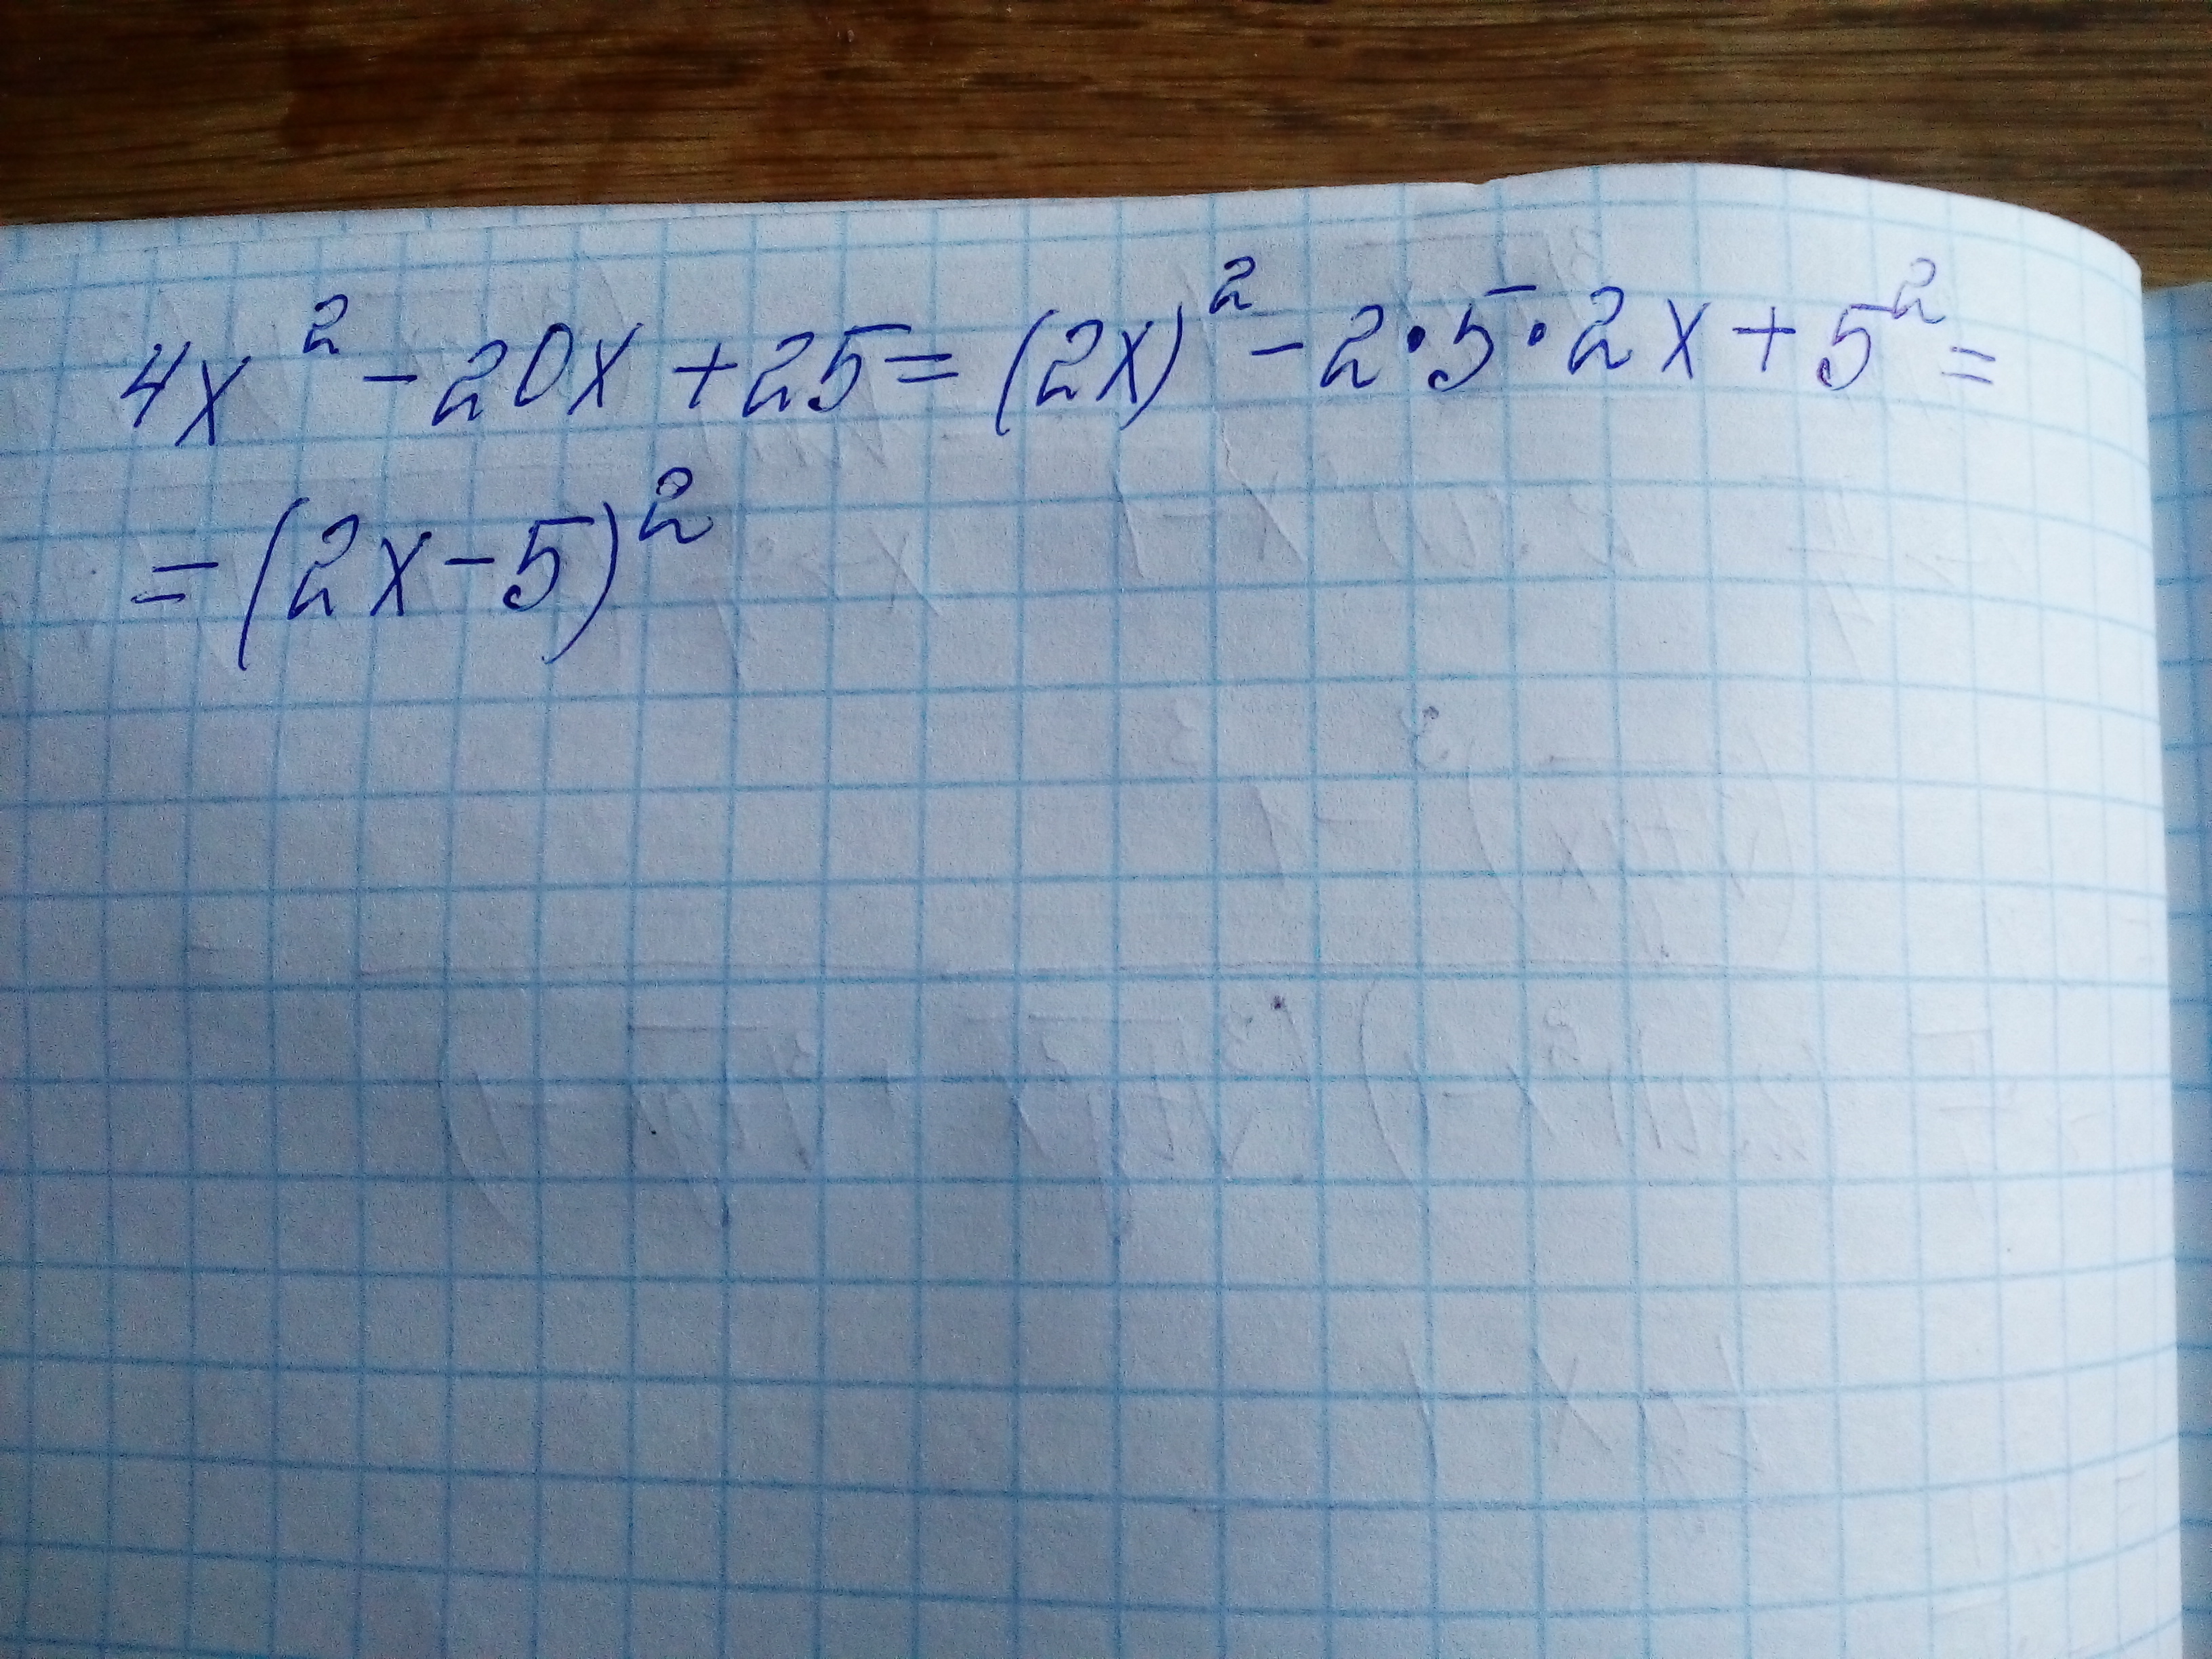 4x² - 20x + 25 = (2x)² - 2·5·2x + 5² =
= (2x - 5)²